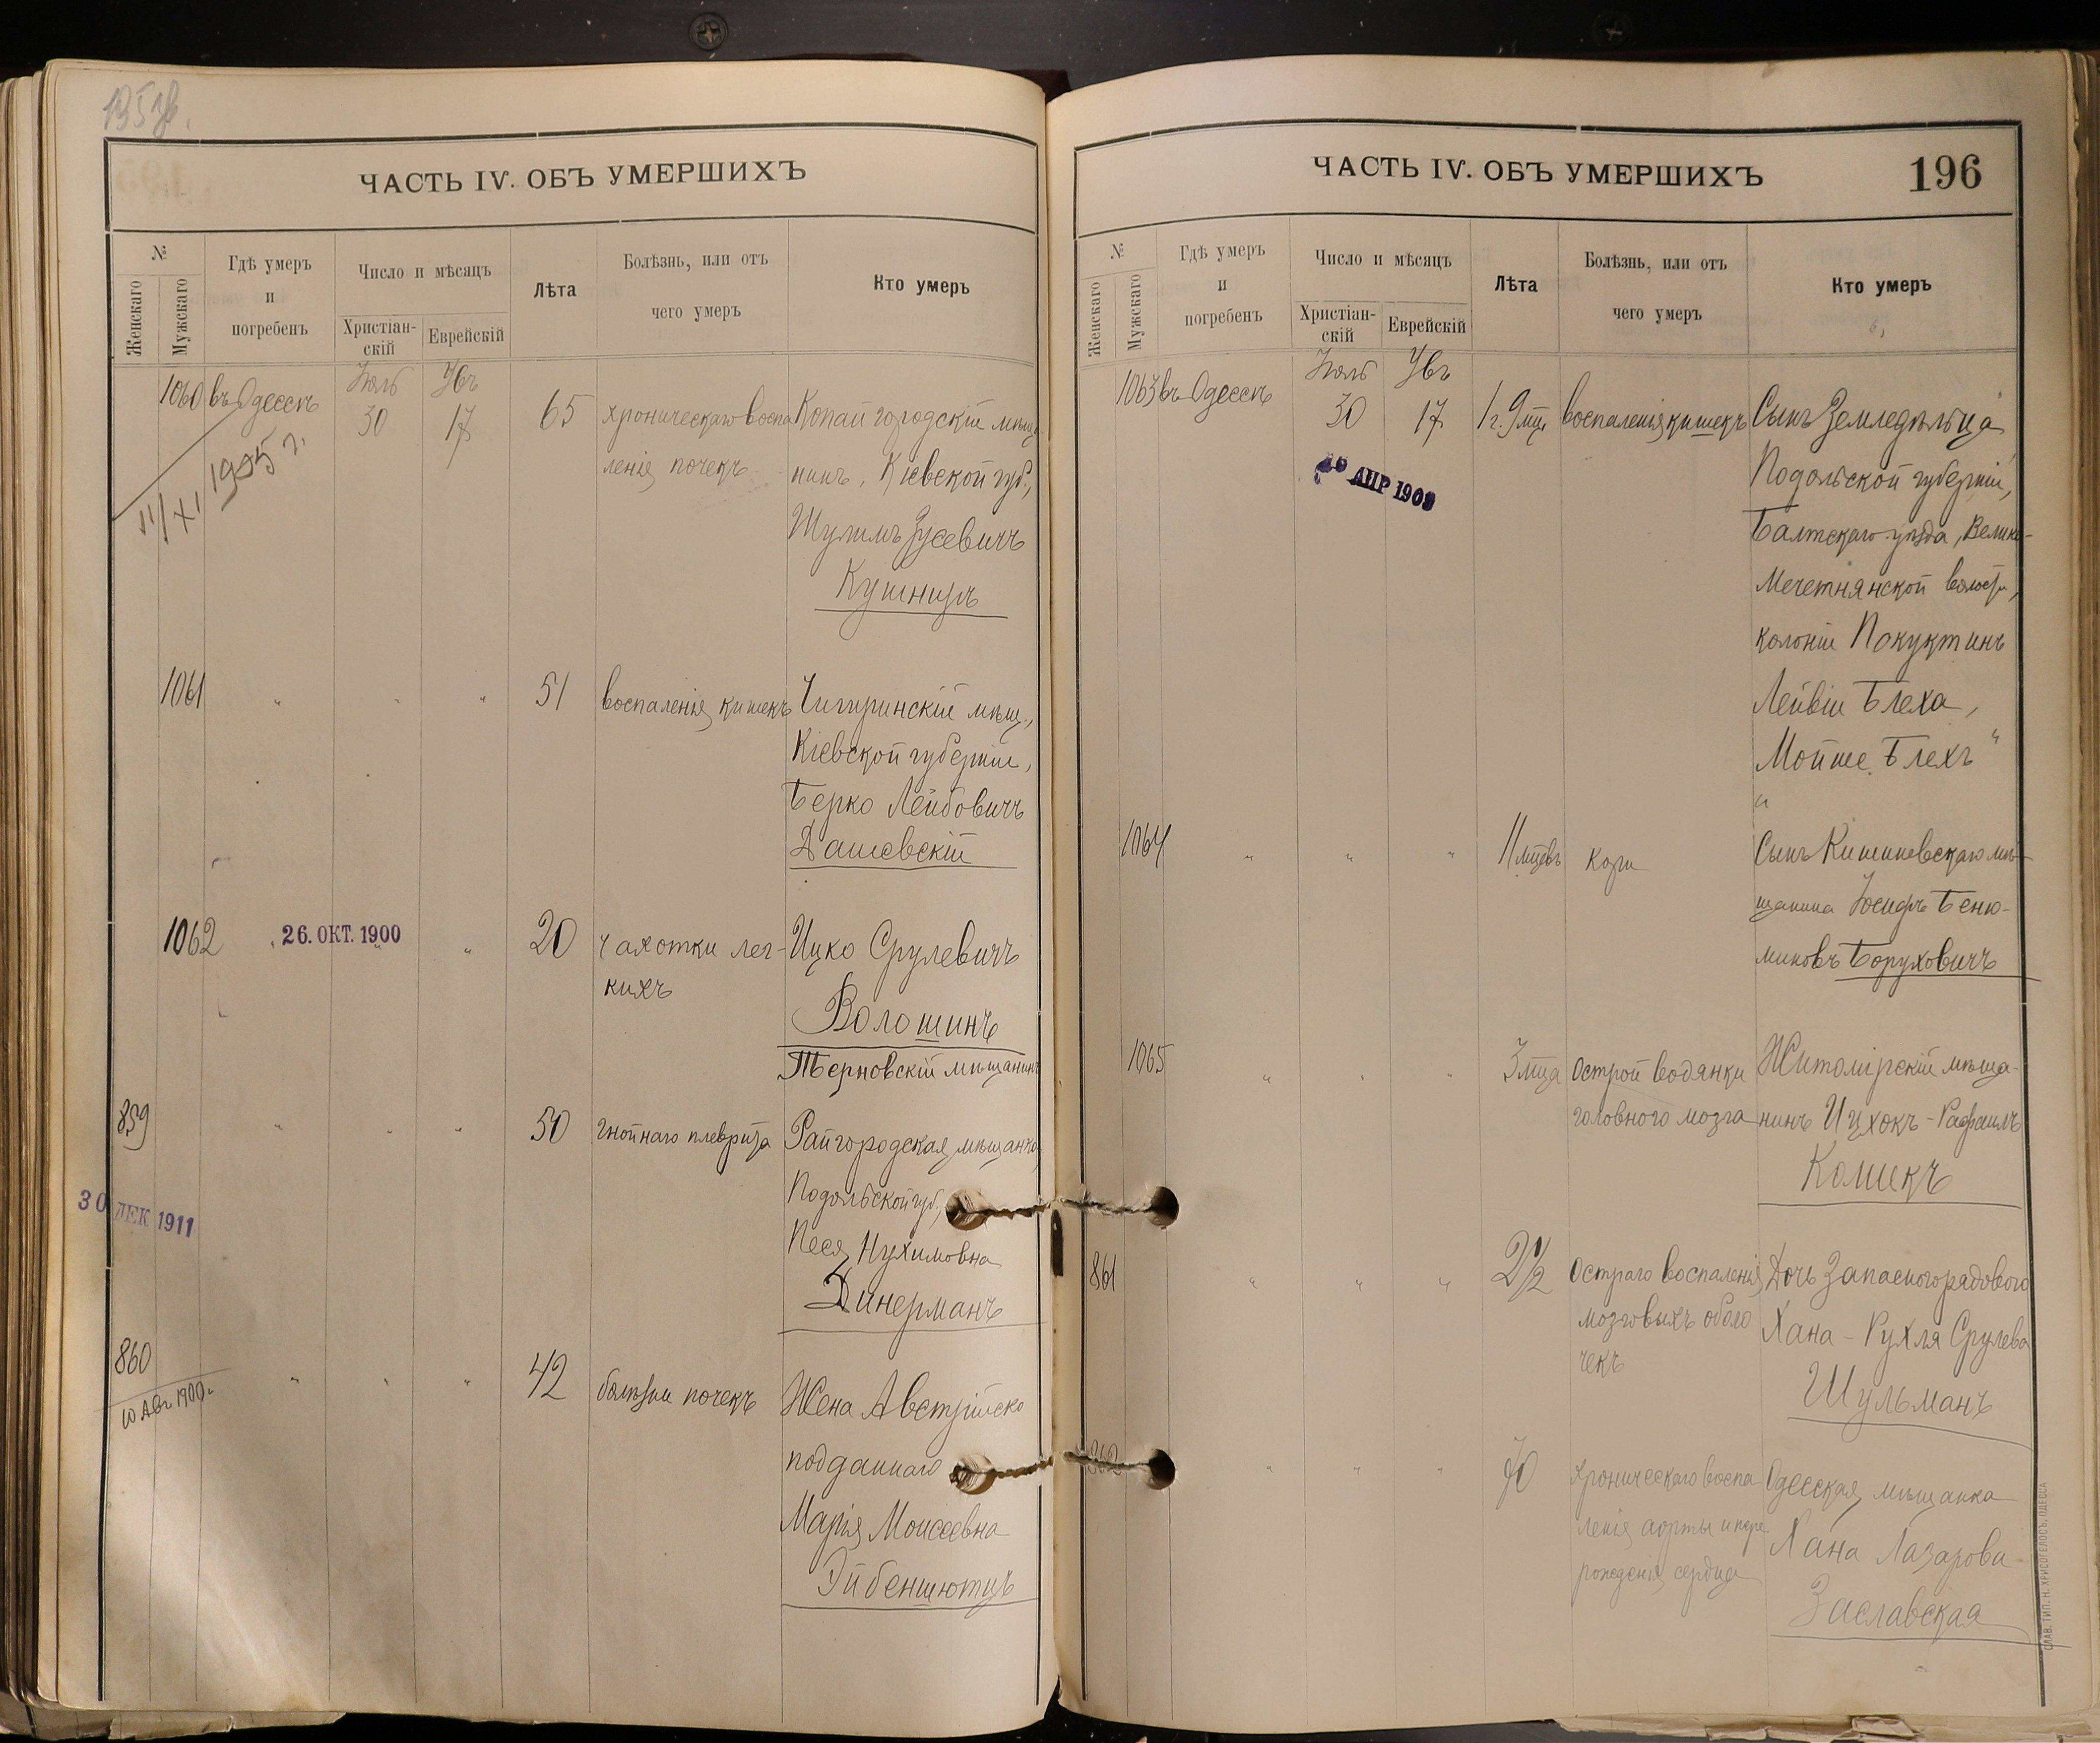 195 об.
ЧАСТЬ IV. ОБЪ УМЕРШИХЪ
№
Женскаго
Мужскаго
Гдѣ умеръ
и
погребенъ
Число и мѣсяцъ
Христіан-
скій
Еврейскій
Лѣта
Болѣзнь, или отъ
чего умеръ
Кто умеръ
1060 въ Одессѣ
Іюль 30
Увъ 17
65
хроническаго воспа
ленія почекъ
Копайгородскій мѣща
нинъ, Кіевской губ.,
Шулимъ Зусевичъ
Кушниръ
11/XI 1905 г.
1061 " " "
51
воспаленія кишекъ
Чигиринскій мѣщ.,
Кіевской губерніи,
Берко Лейбовичъ
Дашевскій
1062 " " "
26. ОКТ. 1900
20
чахотки лег-
кихъ
Ицко Срулевичъ
Волошинъ
Терновскій мѣщанинъ
859 " " "
30 ДЕК 1911
50
гнойнаго плеврита
Райгородская мѣщанка,
Подольской губ.,
Песя Нухимовна
Динерманъ
860 " " "
10 Авг 1900 г.
42
болѣзни почекъ
Жена Австрійско
подданнаго
Марія Моисеевна
Эйбеншютцъ
ЧАСТЬ IV. ОБЪ УМЕРШИХЪ
196
№
Женскаго
Мужскаго
Гдѣ умеръ
и
погребенъ
Число и мѣсяцъ
Христіан-
скій
Еврейскій
Лѣта
Болѣзнь, или отъ
чего умеръ
Кто умеръ
1063 въ Одессѣ
Іюль 30
Увъ 17
АПР 1909
1 г. 9 мц.
воспаленія кишекъ
Сынъ Земледѣльца
Подольской губерніи,
Балтскаго уѣзда, Велико-
Мечетнянской волости,
колоніи Покуктинъ
Лейвіи Блеха,
Мойше Блехъ "
"
1064 " " "
11 мцевъ
кори
Сынъ Кишиневскаго мѣ-
щанина Іосифъ Беню-
миновъ Боруховичъ
1065 " " "
3 мца
Острой водянки
головного мозга
Житомірскій мѣща-
нинъ Ицхокъ-Рафаилъ
Комекъ
861 " " "
2 1/2
Остраго воспаленія
мозговыхъ оболо
чекъ
Дочь Запасного рядового
Хана-Рухля Срулева
Шульманъ
862 " " "
70
Хроническаго воспа
ленія аорты и пере
рожденія сердца
Одесская мѣщанка
Хана Лазарова
Заславская
СЛАВ. ТИП. Н. ХРИСОГЕЛОСЪ, ОДЕССА